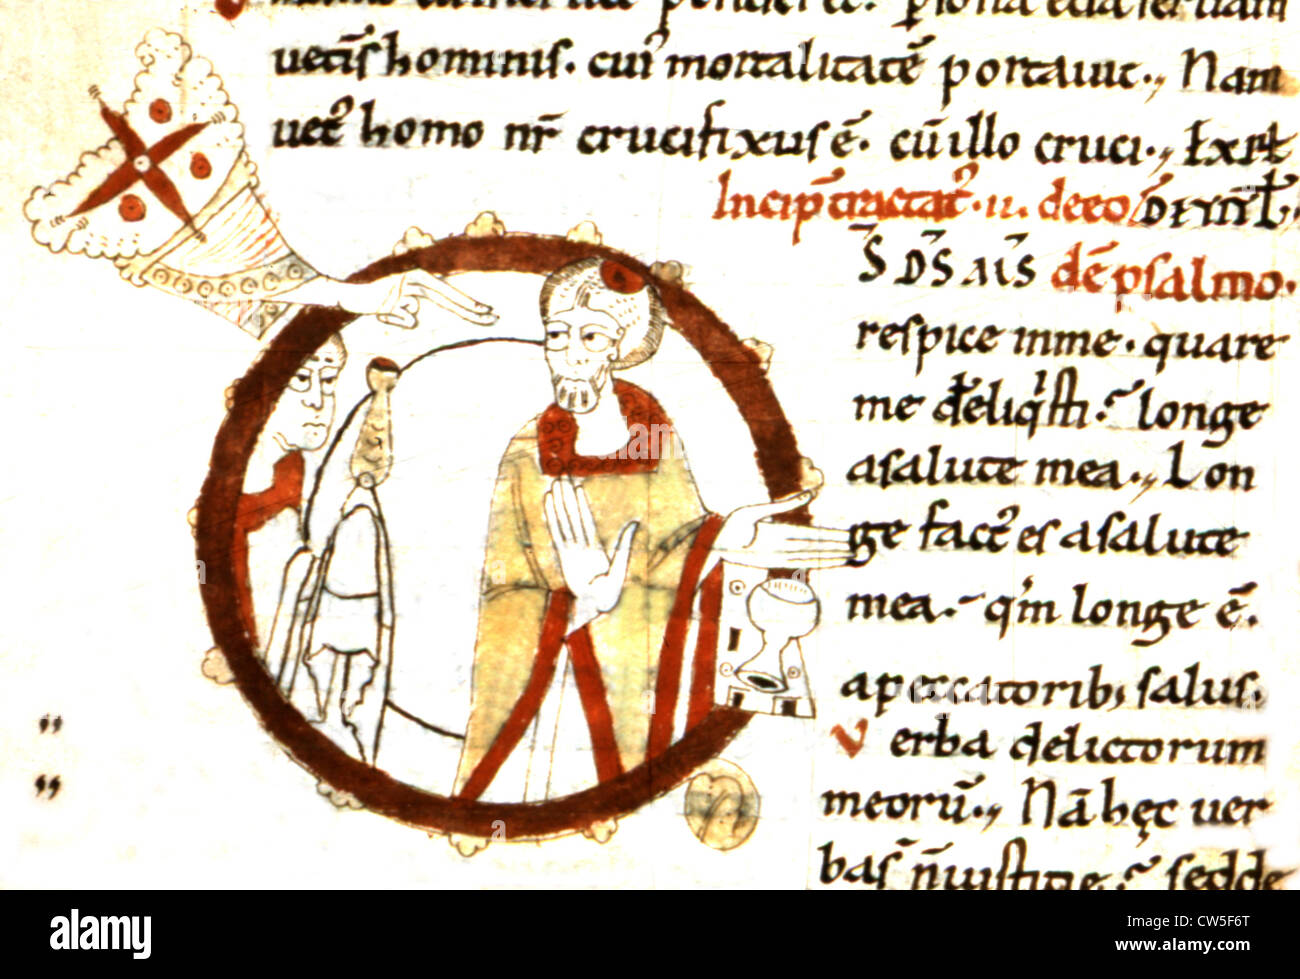 uet̄is hominis. cui' mortalitatē portauit., Nam
uet' homo nr̄ crucifixus ē. cū illo cruci., Exp̄l
Incip̄ tractat'. ii. de eo
S̄ D'S M̄S dē psalmo.
respice in me. quare
me dereliqisti. longe
a salute mea., Lon
ge fact' es a salute
mea. qm longe ē.
a peccatorib; salus.
Verba delictorum
meorū., Nā hęc uer
a alamy
alamy
Image ID: CW5F6T
www.alamy.com